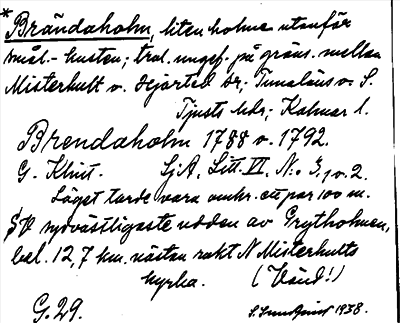 * Brändaholm, liten holme utanför
smål-kusten; trol. ungef. på gräns. mellan
Misterhult o. Hjorted sr; Tunaläns o. S.
Tjusts hdr; Kalmar l.
Brendaholm 1788 o. 1792.
G. Klint. Sj.A. Litt. VI, N:o 3, 1 o. 2.
Läget torde vara omkr. ett par 100 m.
SV sydvästligaste udden av Grytholmen,
bel. 12,7 km. nästan rakt N Misterhults
kyrka. (Vänd!)
G. 29. S. Sundquist 1938.